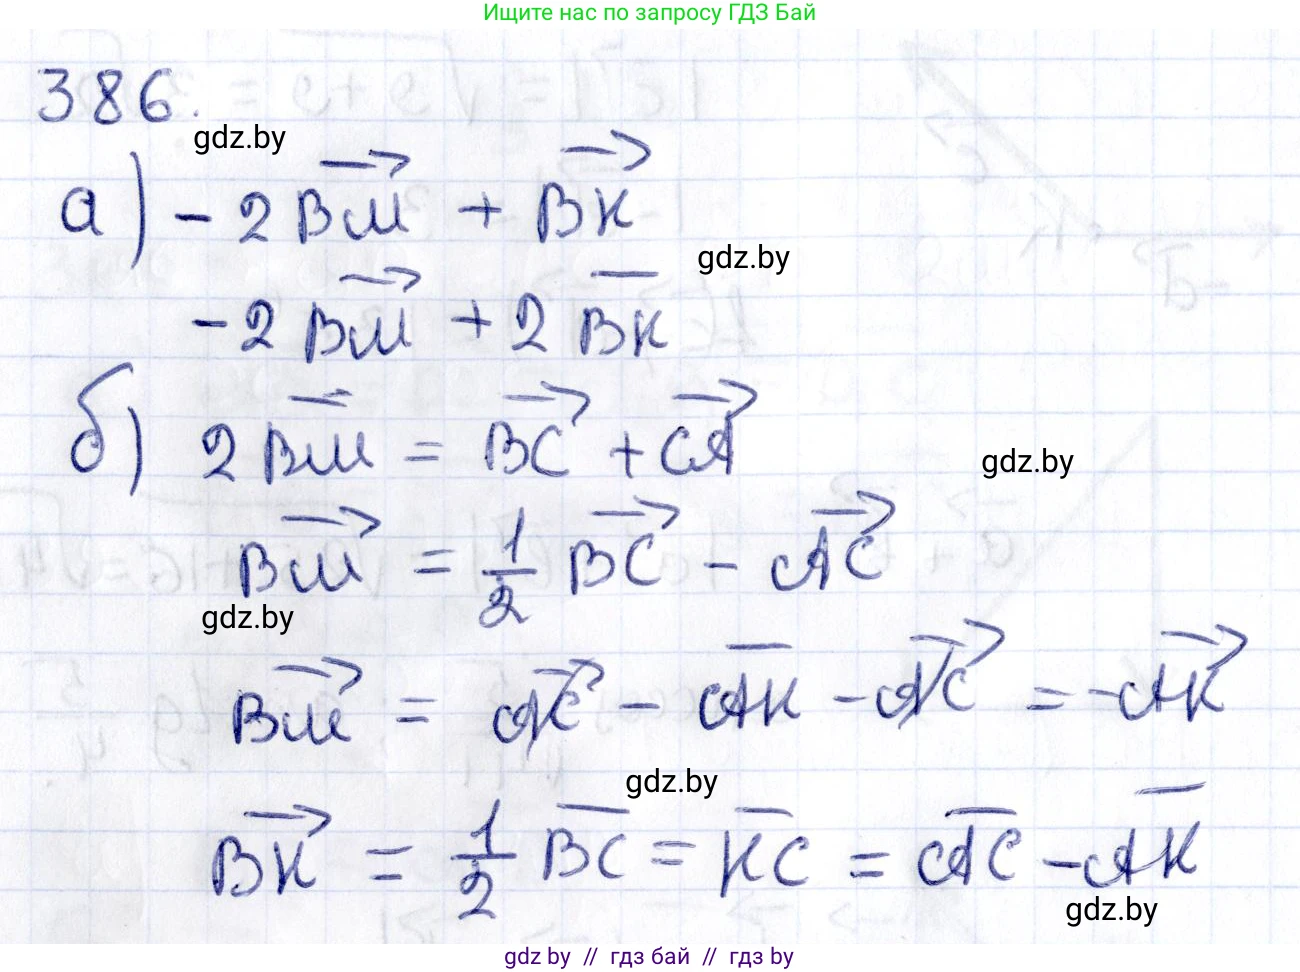 Ищите нас по запросу ГДЗ Бай
386.
gdz.by
а) - 2 BM + BK
gdz.by
- 2 BM + 2 BK
б) 2 BM = BC + CA
gdz.by
BM = 1/2 BC - AC
gdz.by
BM = AC - AK - AC = - AK
gdz.by
BK = 1/2 BC = KC = AC - AK
gdz.by
gdz by // гдз бай // гдз by